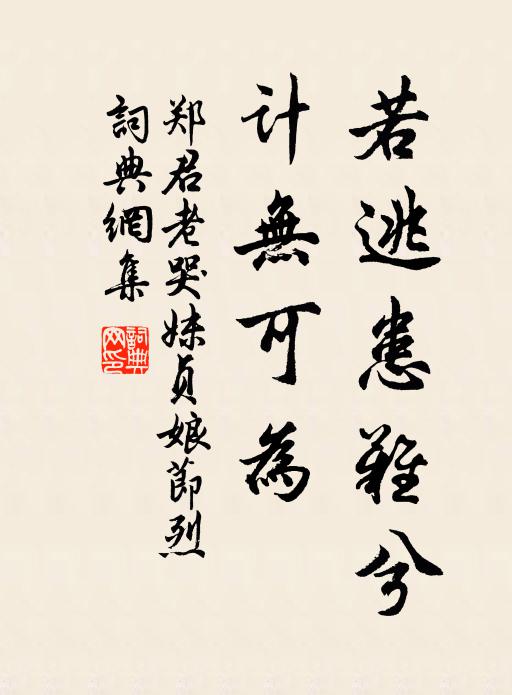 若逃患難兮
计無可為
郑君老哭妹贞娘節烈
詞典網集
詞典网印